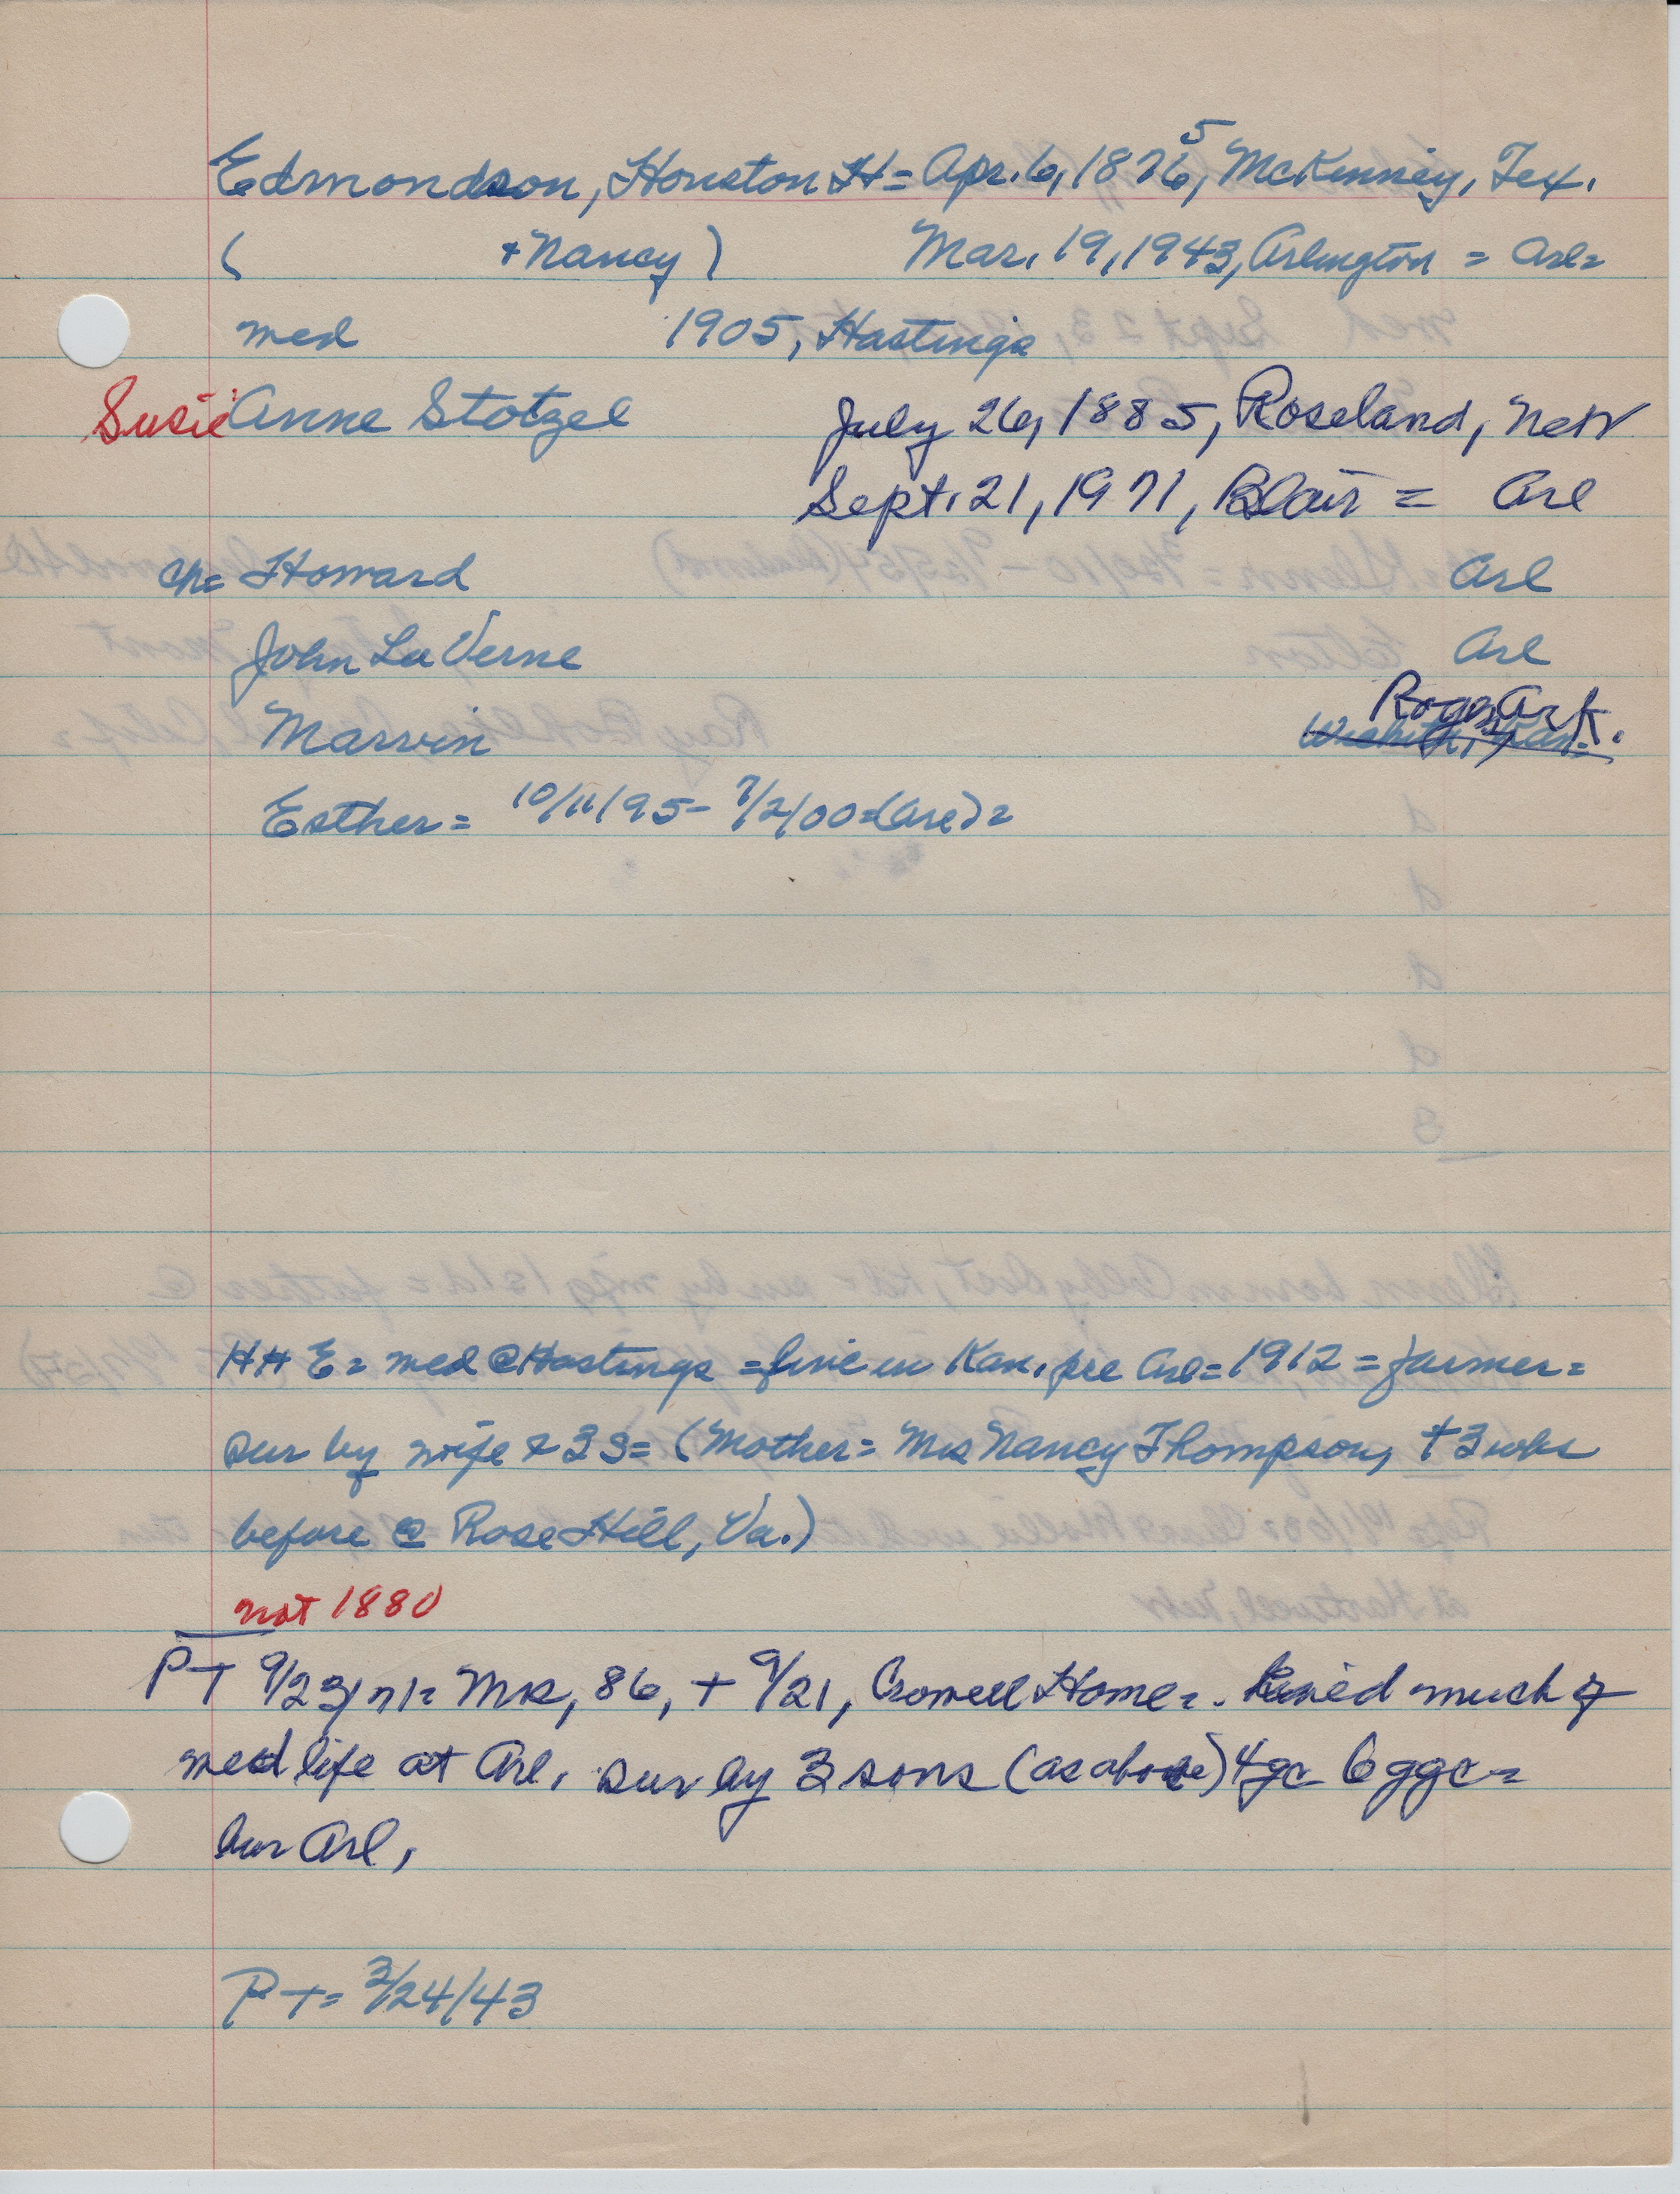 Edmondson, Houston H = Apr. 6, 1876, 5 McKinney, Tex.
( + Nancy) Mar. 19, 1943, Arlington = Arl=
med 1905, Hastings
Susie Anne Stotzel July 26, 1885, Roseland, Nebr
Sept. 21, 1971, Blair = Arl
ch= Howard Arl
John LaVerne Arl
Rogers, Ark.
Marvin Wichita, Kan.
Esther = 10/11/95 - 7/2/00 = (Arl) =
HH E = med @ Hastings = live in Kan. pre Arl = 1912 = farmer =
sur by wife & 3 S = (Mother = Mrs Nancy Thompson, + 3 wks
before @ Rose Hill, Va.)
not 1880
PT 9/23/71 = Mrs, 86, + 9/21, Crowell Home =. Lived much of
med life at Arl. sur by 3 sons (as above) 4 gc 6 ggc =
bur Arl.
PT = 3/24/43